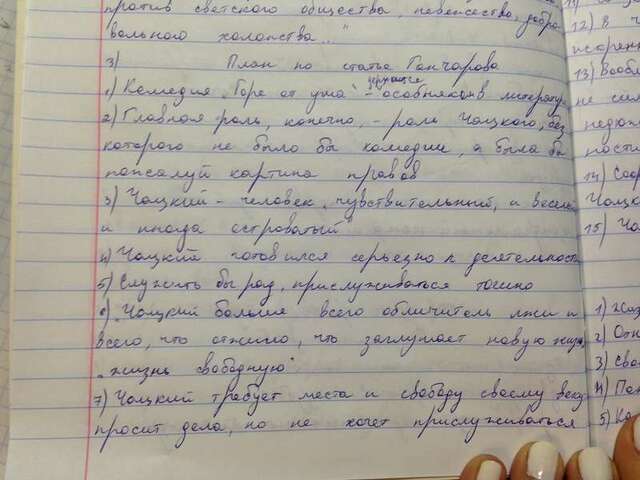 против светского общества, невежество, добро
вольного холопства..."
3) План по статье Гончарова
держащие
1) Комедия "Горе от ума" - особняком в литературе
2) Главная роль, конечно, - роль Чацкого, без
которого не было бы комедии, а была бы
пожалуй картина нравов
3) Чацкий - человек "чувствительный, и весел
и иногда островатый"
4) Чацкий готовился серьезно к деятельности
5) Служить бы рад, прислуживаться тошно
6) "Чацкий больше всего обличитель лжи и
всего, что отжило, что заглушает новую жизнь,
"жизнь свободную"
7) Чацкий требует места и свободу своему веку
просит дела, но не хочет прислуживаться
12) В
13) Вооб
не сил
14)
Чацк
15) Ча
1)
2) Отн
3) Сво
4)
5)